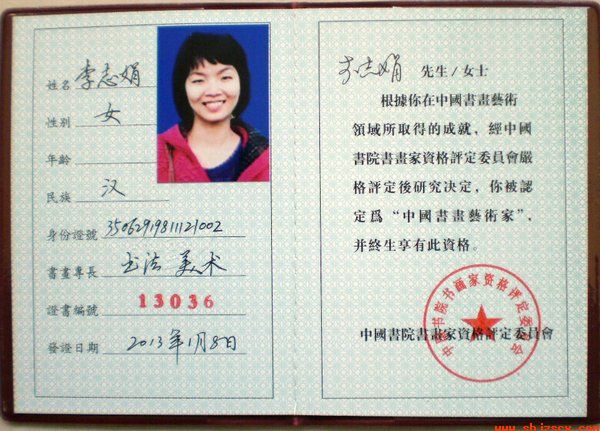 姓名 李志娟
性别 女
年齡
民族 汉
身份證號 350629198112 1002
書畫專長 书法 美术
證書編號 13036
發證日期 2013年1月8日
李志娟 先生/女士
根據你在中國書畫藝術
領域所取得的成就，經中國
書院書畫家資格評定委員會嚴
格評定後研究决定，你被認
定爲“中國書畫藝術家”，
并終生享有此資格。
中國書院書畫家資格評定委員會
中国书院书画家资格评定委员会
www.shjzscx.com